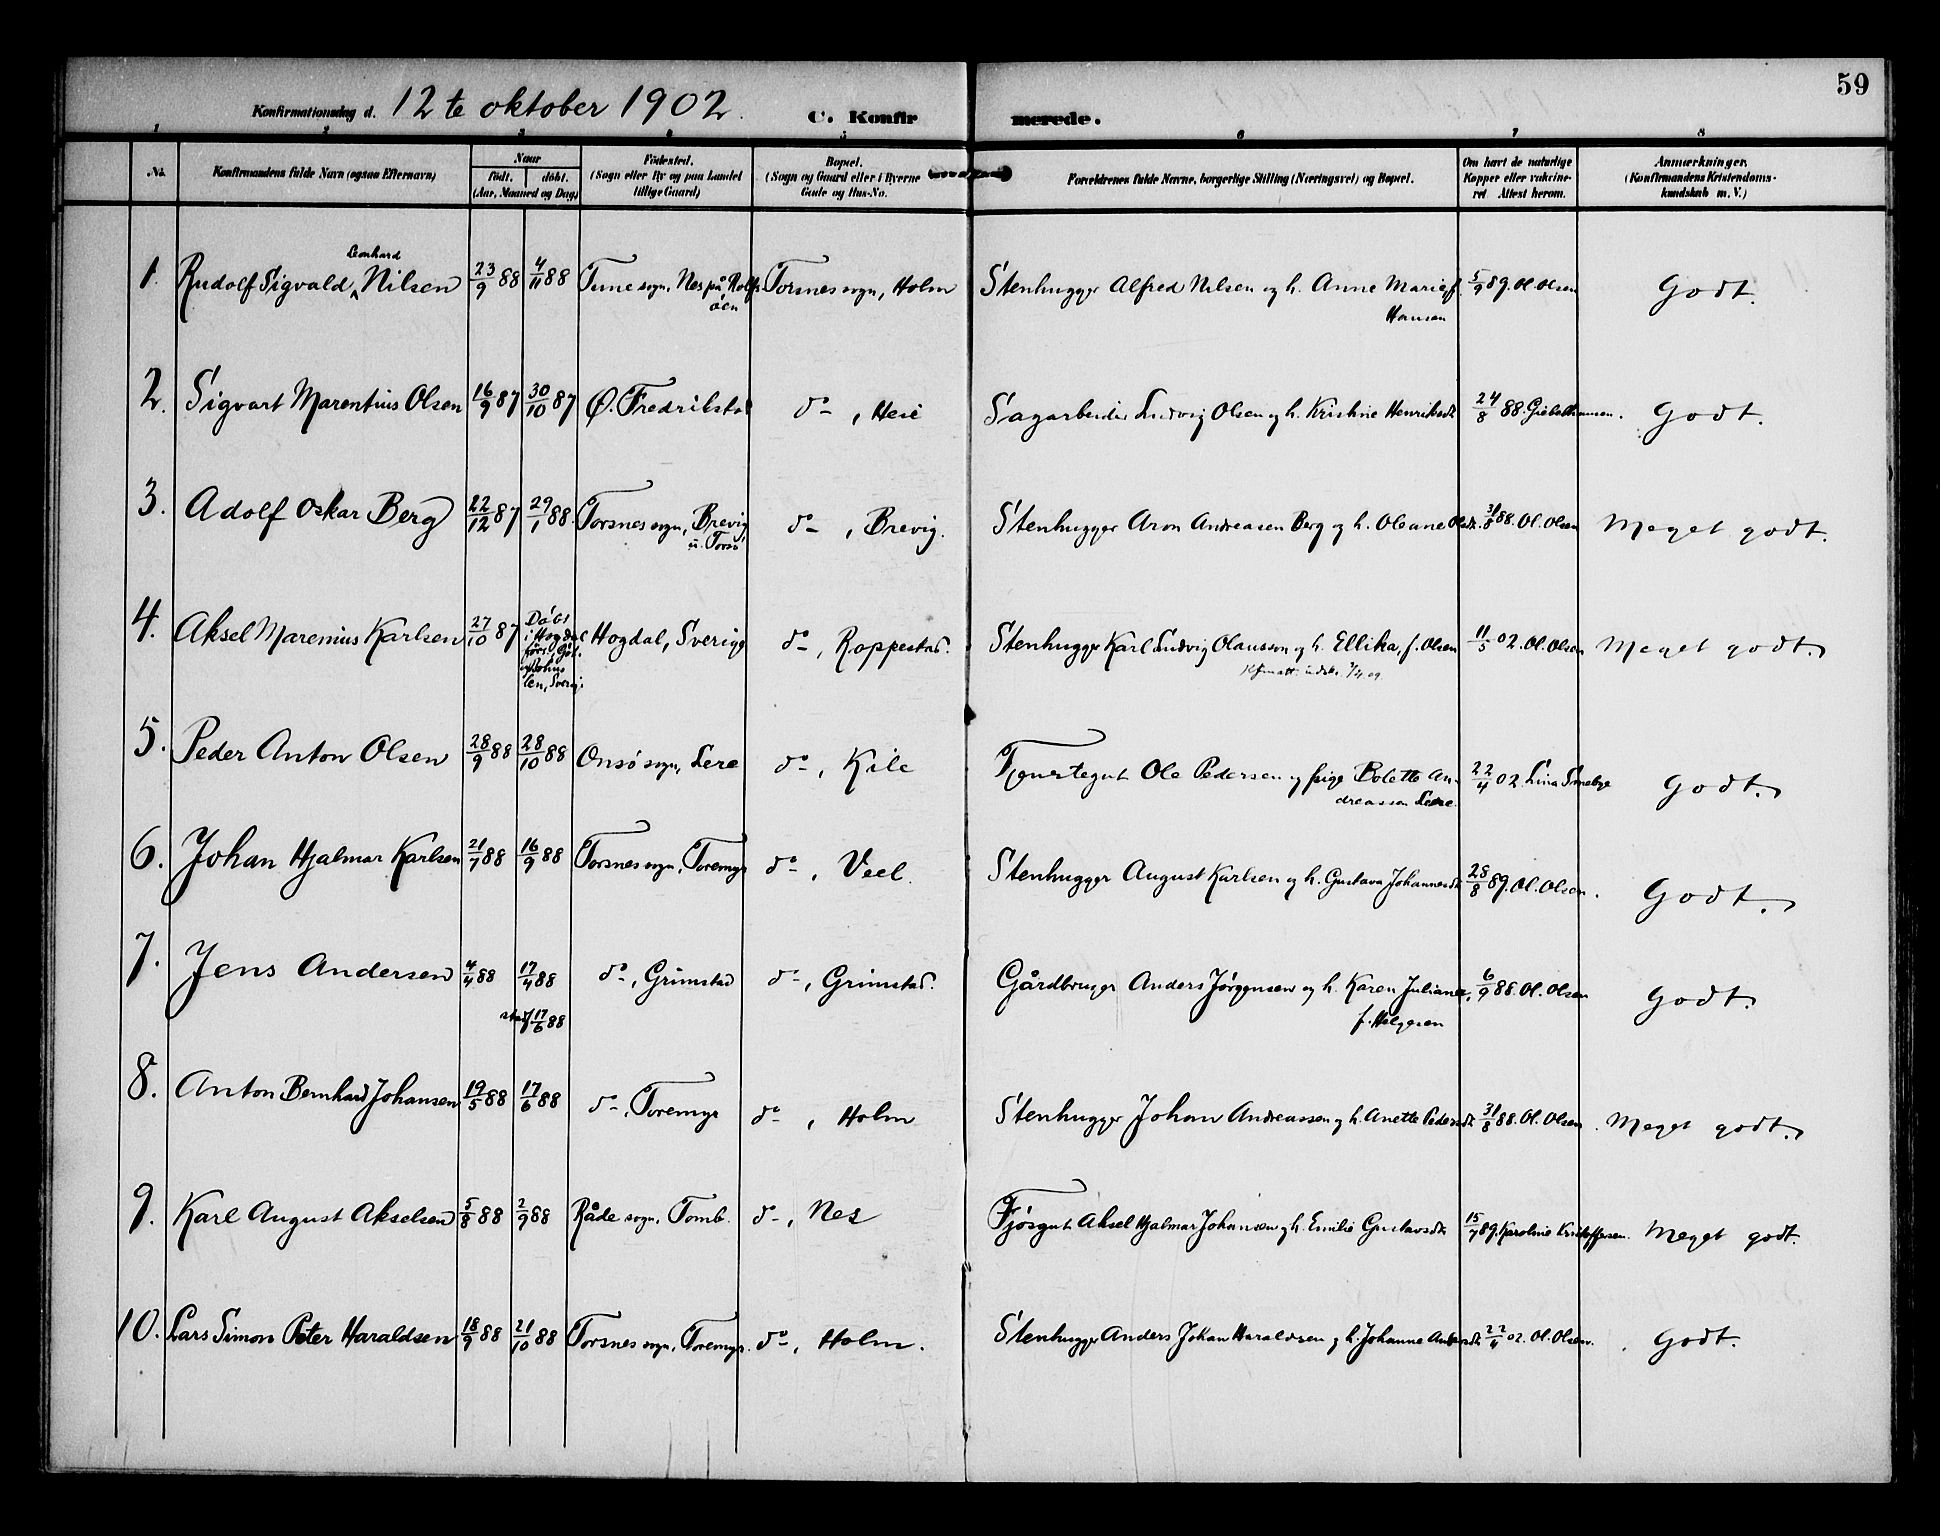 59
Konfirmationsdag d. 12te oktober 1902. C. Konfirmerede.
1 2 3 4 5 6 7 8
No. Konfirmandens fulde Navn (ogsaa Efternavn) Naar født. døbt. (Aar, Maaned og Dag) Fødested. (Sogn eller By og paa Landet tillige Gaard) Bopæl. (Sogn og Gaard eller i Byerne Gade og Hus-No. Forældrenes fulde Navne, borgerlige Stilling (Næringsvei) og Bopæl. Om havt de naturlige Kopper eller vakcineret Attest herom. Anmærkninger. (Konfirmandens Kristendomskundskab m. V.)
1. Rudolf Sigvald Leonhard Nilsen 23/9 88 4/11 88 Tune sogn, Nes på Rolfsöen Torsnes sogn, Holm Stenhugger Alfred Nilsen og h. Anne Marie f. Hansen 5/9 89. Ol. Olsen Godt.
2. Sigvart Marentius Olsen 16/9 87 30/10 87 Ø. Fredrikstad do , Heie Sagarbeider Ludvig Olsen og h. Kristine Henriksdt. 24/8 88. Godt.
3. Adolf Oskar Berg 22/12 87 29/1 88. Torsnes sogn, Brevig u. Torsn do , Brevig. Stenhugger Aron Andreasen Berg og h. Oleane Olsdt. 31/8 88. Ol. Olsen Meget godt.
4. Aksel Marenius Karlsen 27/10 87 Döbt i Hogdal Hogdal, Sverige do , Roppestad. Stenhugger Karl Ludvig Olausson og h. Ellika, f. Olsen 11/5 02. Ol. Olsen Meget godt.
5. Peder Anton Olsen 28/9 88 28/10 88 Onsö sogn, Lere do , Kile Tjenstegut Ole Pedersen og pige Bolette Andreassen Lere. 22/4 02. Lina Godt.
6. Johan Hjalmar Karlsen 21/7 88 16/9 88 Torsnes sogn, Toremyr do , Veel. Stenhugger August Karlsen og h. Gustava Johannesdt. 25/8 89. Ol. Olsen. Godt.
7. Jens Andersen 4/4 88 17/4 88 do , Grimstad do , Grimstad. Gårdbruger Anders Jörgensen og h. Karen Juliane, f. Helgesen 6/9 88. Ol. Olsen Godt.
stadf 17/6 88
8. Anton Bernhard Johansen 19/5 88 17/6 88 do , Toremyr do , Holm Stenhugger Johan Andreassen og h. Anette Pedersdt. 31/8 88. Ol. Olsen. Meget godt.
9. Karl August Akselsen 5/8 88 2/9 88 Råde sogn, Tomb. do , Nes Fjösgut Aksel Hjalmar Johansen og h. Emilie Gustavsdt. 15/7 89. Karoline Kristoffersen. Meget godt.
10. Lars Simon Peter Haraldsen 18/9 88 21/10 88 Torsnes sogn, Toremyr. do , Holm. Stenhugger Anders Johan Haraldsen og h. Johanne 22/4 02. Ol. Olsen. Godt.